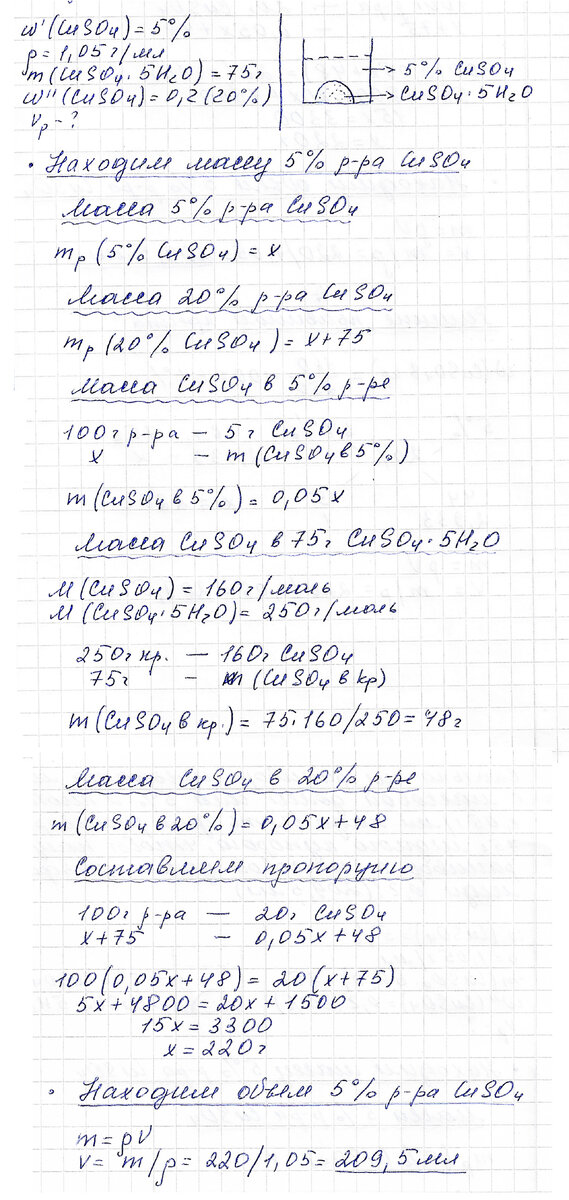 w'(CuSO₄) = 5%
ρ = 1,05 г/мл
m(CuSO₄·5H₂O) = 75г
w''(CuSO₄) = 0,2 (20%)
Vр - ?
5% CuSO₄
CuSO₄·5H₂O
• Находим массу 5% р-ра CuSO₄
Масса 5% р-ра CuSO₄
mр (5% CuSO₄) = x
Масса 20% р-ра CuSO₄
mр (20% CuSO₄) = x+75
Масса CuSO₄ в 5% р-ре
100г р-ра — 5 г CuSO₄
x — m (CuSO₄ в 5%)
m (CuSO₄ в 5%) = 0,05x
Масса CuSO₄ в 75г CuSO₄·5H₂O
M(CuSO₄) = 160г/моль
M(CuSO₄·5H₂O) = 250г/моль
250г кр. — 160г CuSO₄
75г — m (CuSO₄ в кр)
m (CuSO₄ в кр.) = 75·160/250 = 48г
Масса CuSO₄ в 20% р-ре
m (CuSO₄ в 20%) = 0,05x+48
Составляем пропорцию
100г р-ра — 20г CuSO₄
x+75 — 0,05x+48
100(0,05x+48) = 20(x+75)
5x+4800 = 20x+1500
15x = 3300
x = 220г
• Находим объем 5% р-ра CuSO₄
m = ρV
V = m/ρ = 220/1,05 = 209,5мл